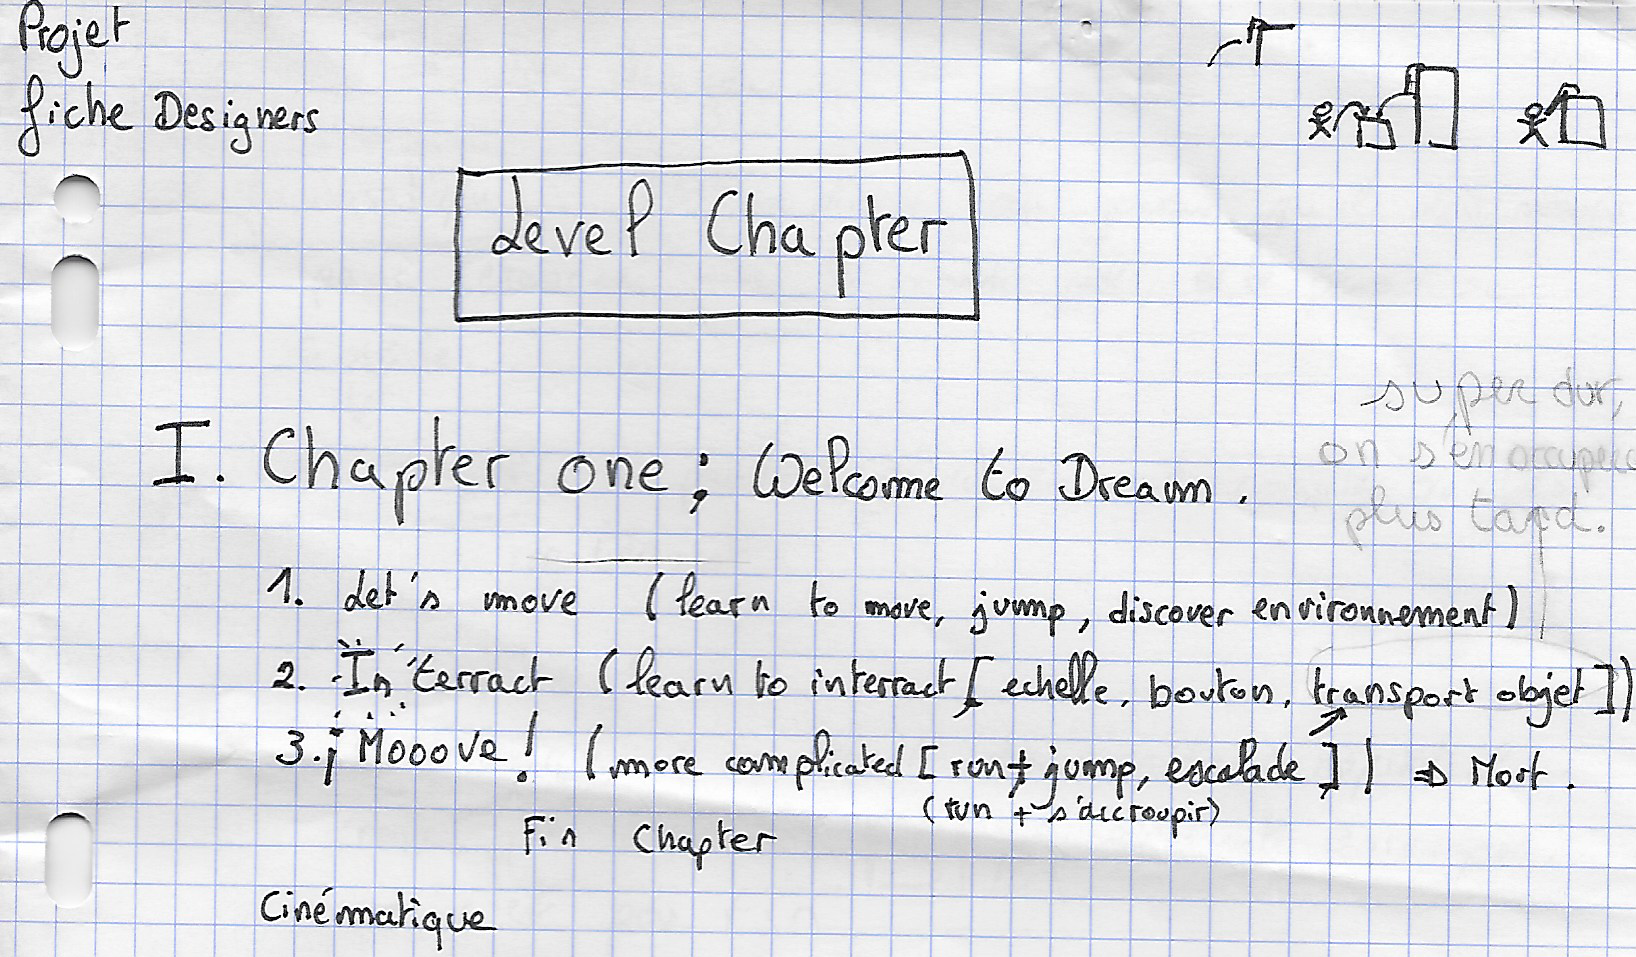 Projet
fiche Designers
Level Chapter
super dur,
on s'en occupera
plus tard.
I. Chapter one ; Welcome to Dream.
1. Let's move (learn to move, jump, discover environnement)
2. Interract (learn to interract [ echelle, bouton, transport objet ])
3. ¡ Mooove ! (more complicated [ run + jump, escalade ] ) => Mort.
(run + s'accroupir)
Fin Chapter
Cinématique